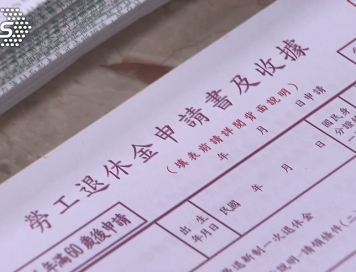 S
勞工退休金申請書及收據
(填表前請詳閱背面說明)
年 月 日申請
國民身
分證
年滿60歲後申請
出生
年月日
民國 年 月 日
新制一次退休金